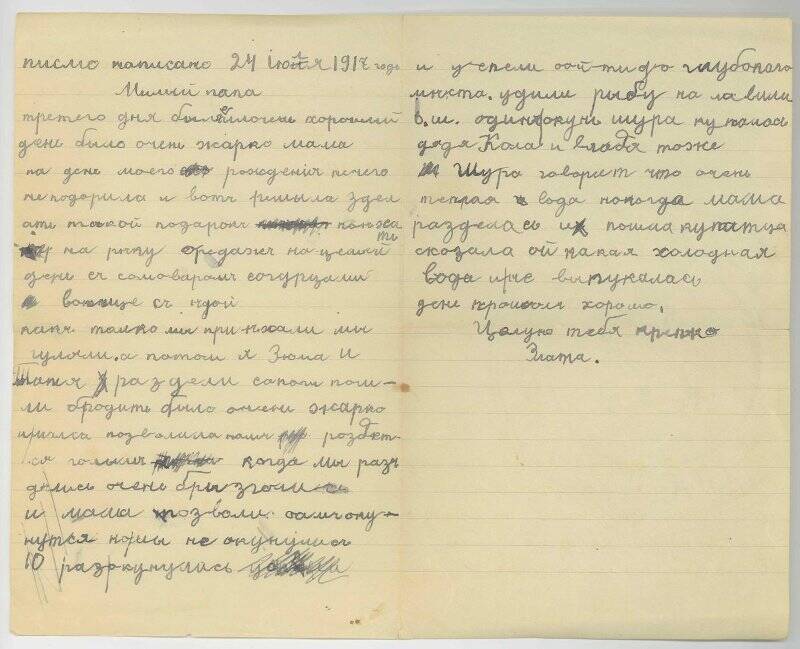 писмо написано 24 іюля 1917 года
Милый папа
третего дня был очень хороший
день было очень жарко мама
на день моего рождения нечего
не подорила и вотъ решыла здел
ать такой подарок
на реку ... на целый
день съ самоваромъ согурцами
съ едой
папа толко мы приехали мы
гуляли. а потом я Зюма и
Таня раздели сапоги пош-
ли бродить было очень жарко
позволила намъ роздет
ся когда мы разд
делись очень брызгали
и мама позволи окону-
нутся но мы не окунулись
10 раз окунулись
и успели дойти до глубокого
места. удили рыбу но лавили
в. и. один окунь шура купалась
дядя Коля и владя тоже
Шура говорит что очень
теплая вода но когда мама
разделась и пошла купатца
сказала ой какая холодная
вода выкупалась
день прошол хорошо.
Целую тебя крепко
Злата.